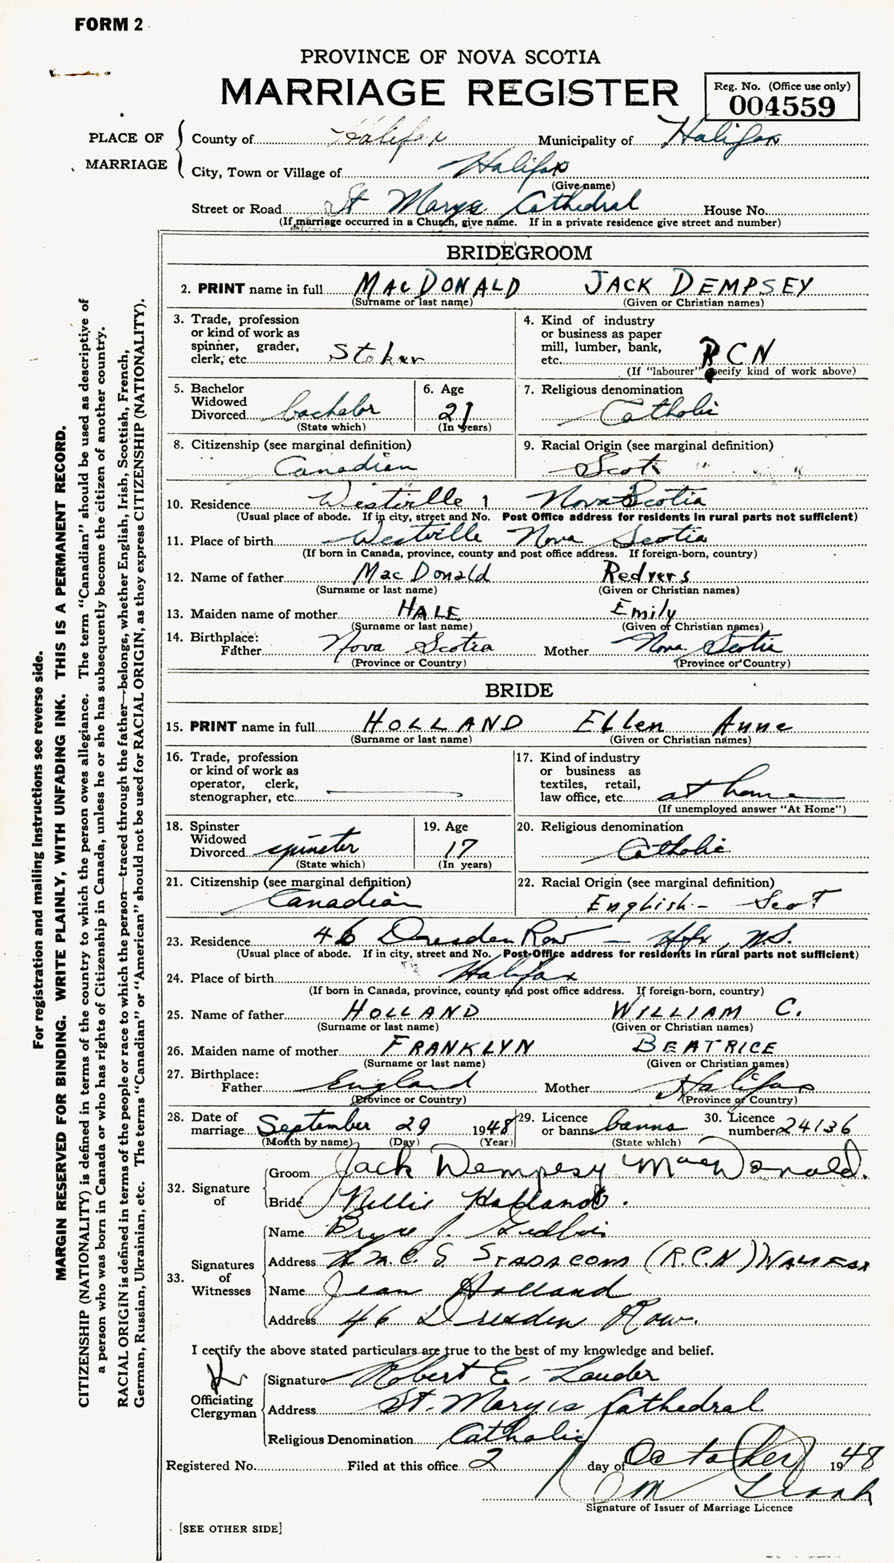 FORM 2
PROVINCE OF NOVA SCOTIA
MARRIAGE REGISTER
Reg. No. (Office use only)
004559
PLACE OF MARRIAGE
County of Halifax Municipality of Halifax
City, Town or Village of Halifax
(Give name)
Street or Road St Marys Cathedral House No.
(If marriage occurred in a Church, give name. If in a private residence give street and number)
BRIDEGROOM
2. PRINT name in full MacDONALD JACK DEMPSEY
(Surname or last name) (Given or Christian names)
3. Trade, profession or kind of work as spinner, grader, clerk, etc. Stoker
4. Kind of industry or business as paper mill, lumber, bank, etc. RCN
(If "labourer" specify kind of work above)
5. Bachelor Widowed Divorced bachelor
(State which)
6. Age 21
(In years)
7. Religious denomination Catholic
8. Citizenship (see marginal definition) Canadian
9. Racial Origin (see marginal definition) Scot
10. Residence Westville, Nova Scotia
(Usual place of abode. If in city, street and No. Post Office address for residents in rural parts not sufficient)
11. Place of birth Westville Nova Scotia
(If born in Canada, province, county and post office address. If foreign-born, country)
12. Name of father MacDonald Redvers
(Surname or last name) (Given or Christian names)
13. Maiden name of mother HALE Emily
(Surname or last name) (Given or Christian names)
14. Birthplace: Father Nova Scotia Mother Nova Scotia
(Province or Country) (Province or Country)
BRIDE
15. PRINT name in full HOLLAND Ellen Anne
(Surname or last name) (Given or Christian names)
16. Trade, profession or kind of work as operator, clerk, stenographer, etc.
17. Kind of industry or business as textiles, retail, law office, etc. at home
(If unemployed answer "At Home")
18. Spinster Widowed Divorced spinster
(State which)
19. Age 17
(In years)
20. Religious denomination Catholic
21. Citizenship (see marginal definition) Canadian
22. Racial Origin (see marginal definition) English - Scot
23. Residence 46 Dresden Row - Hfx, N.S.
(Usual place of abode. If in city, street and No. Post Office address for residents in rural parts not sufficient)
24. Place of birth Halifax
(If born in Canada, province, county and post office address. If foreign-born, country)
25. Name of father HOLLAND WILLIAM C.
(Surname or last name) (Given or Christian names)
26. Maiden name of mother FRANKLYN BEATRICE
(Surname or last name) (Given or Christian names)
27. Birthplace: Father England Mother Halifax
(Province or Country) (Province or Country)
28. Date of marriage September 29 1948
(Month by name) (Day) (Year)
29. Licence or banns banns
(State which)
30. Licence number 24136
32. Signature of
Groom Jack Dempesy MacDonald.
Bride Nellie Holland.
33. Signatures of Witnesses
Name Bryce J.
Address H.M.C.S STADACONA (R.C.N) HALIFAX
Name Jean Holland
Address 46 Dresden Row.
I certify the above stated particulars are true to the best of my knowledge and belief.
Officiating Clergyman
Signature Robert E. Lauder
Address St. Mary's Cathedral
Religious Denomination Catholic
Registered No. Filed at this office 2 day of October 1948
Signature of Issuer of Marriage Licence
[SEE OTHER SIDE]
For registration and mailing instructions see reverse side.
MARGIN RESERVED FOR BINDING. WRITE PLAINLY, WITH UNFADING INK. THIS IS A PERMANENT RECORD.
CITIZENSHIP (NATIONALITY) is defined in terms of the country to which the person owes allegiance. The term "Canadian" should be used as descriptive of
a person who was born in Canada or who has rights of Citizenship in Canada, unless he or she has subsequently become the citizen of another country.
RACIAL ORIGIN is defined in terms of the people or race to which the person—traced through the father—belongs, whether English, Irish, Scottish, French,
German, Russian, Ukrainian, etc. The terms "Canadian" or "American" should not be used for RACIAL ORIGIN, as they express CITIZENSHIP (NATIONALITY).